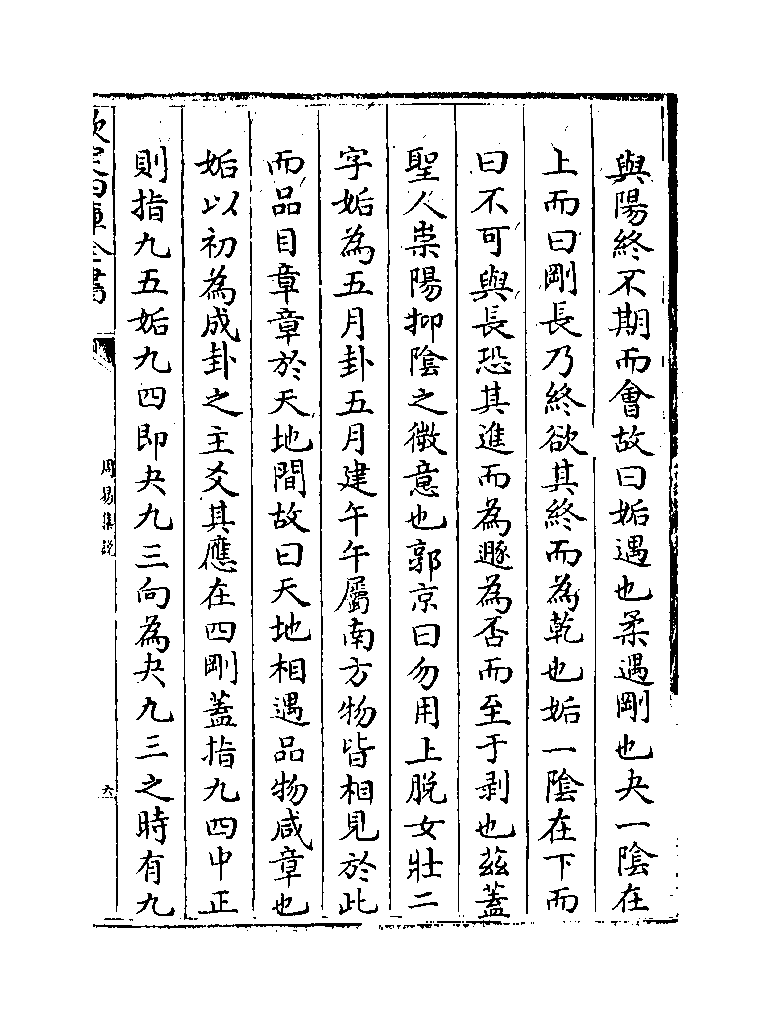 與陽終不期而會故曰姤遇也柔遇剛也夬一陰在
上而曰剛長乃終欲其終而為乾也姤一陰在下而
曰不可與長恐其進而為遯為否而至于剥也茲蓋
聖人崇陽抑陰之微意也郭京曰勿用上脱女壯二
字姤為五月卦五月建午午屬南方物皆相見於此
而品目章章於天地間故曰天地相遇品物咸章也
姤以初為成卦之主爻其應在四剛蓋指九四中正
則指九五姤九四即夬九三向為夬九三之時有九
欽定四庫全書
周易集説